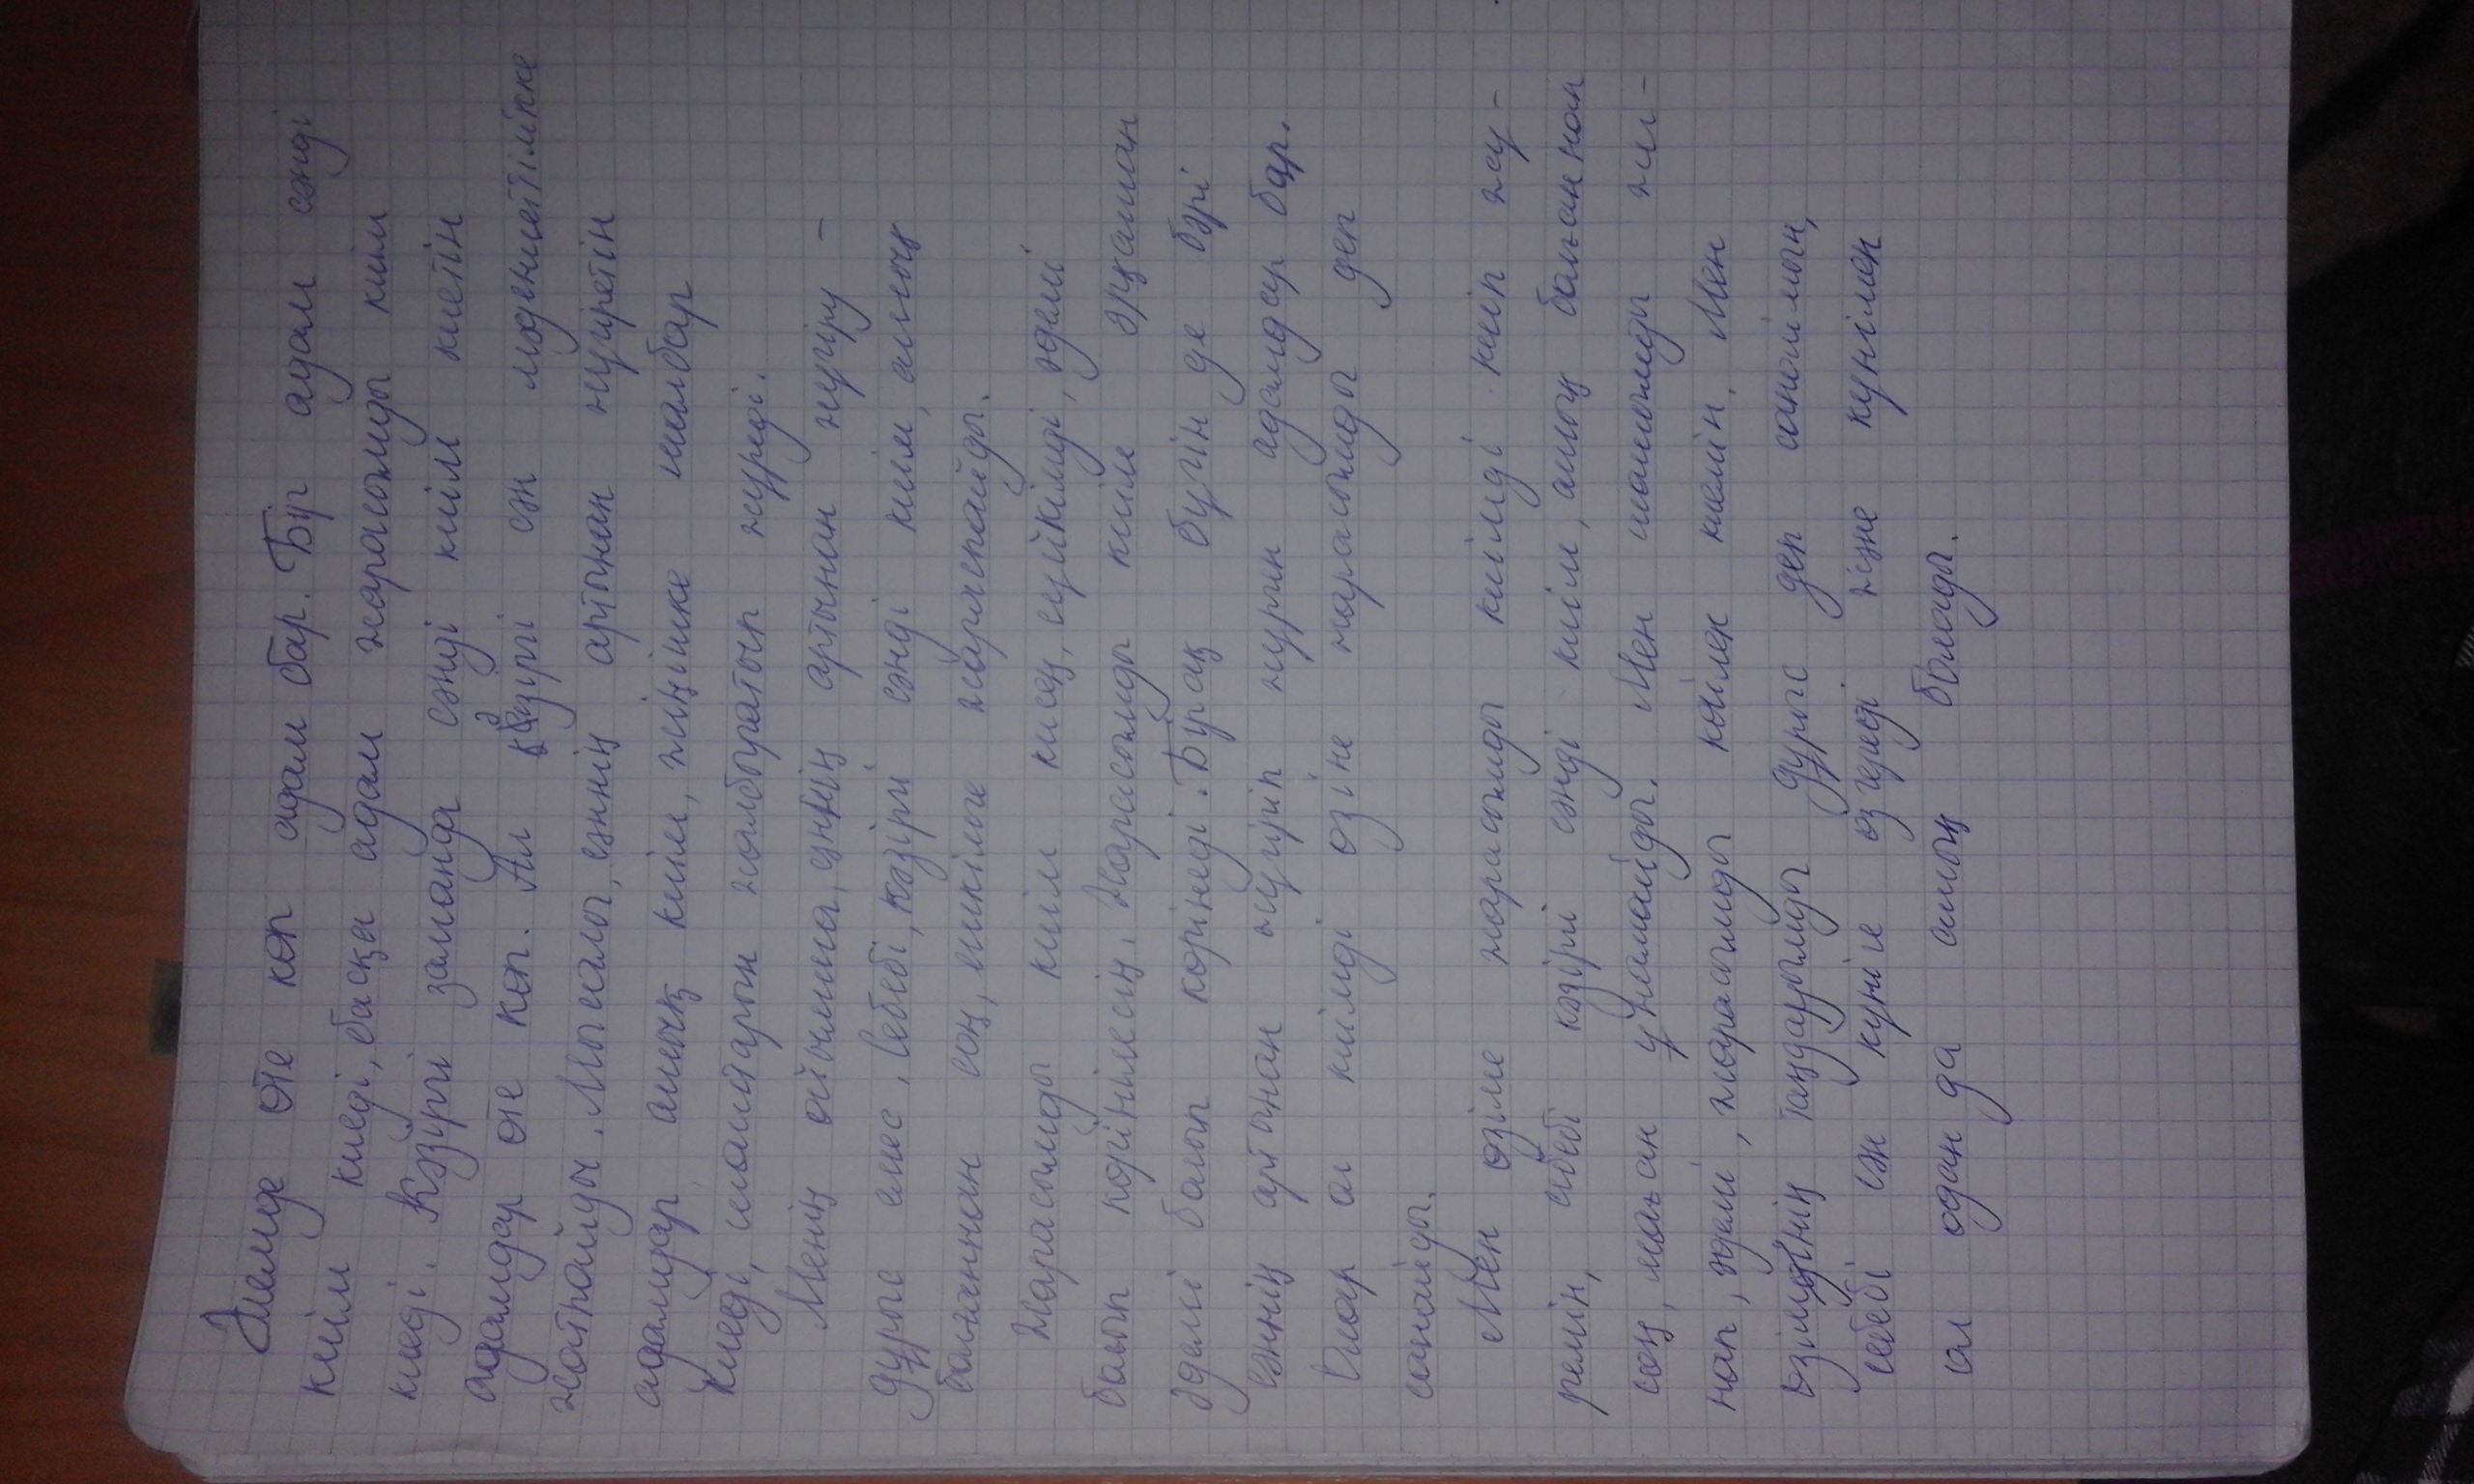 Әлемде өте көп адам бар. Бір адам сәнді
киім киеді, басқа адам жарасымды киім
киеді. Кәзіргі заманда сәнді киім киетін
адамдар өте көп. Ал кәзіргі сән мәдениеттілікке
жатпайды. Мысалы, сәннің артынан жүгіретін
адамдар ашық киім, жіңішке шалбар
киеді, шаштарын жалбыратып жүреді.
Менің ойымша, сәннің артынан жүгіру –
дұрыс емес, себебі, кәзіргі сәнді киім, ашық
болғаннан соң, ешкімге жараспайды.
Жарасымды киім кисең, сүйкімді, әдемі
болып көрінесің. Жарасымды киім әрқашан
әдемі болып көрінеді. Бірақ бүгін де бәрі
сәннің артынан жүгіріп жүрген адамдар бар.
Олар ол киімді өзіне жарасымды деп
санайды.
Мен өзіме жарасымды киімді киіп жү-
ремін, себебі кәзіргі сәнді киім, ашық болғаннан
соң, маған ұнамайды. Мен шашымды жи-
нап, әдемі, жарасымды көйлек киемін. Мен
өзімдінің таңдауымды дұрыс деп санаймын,
себебі сән күніге өзгереді және күнімен
ол одан да ашық болады.